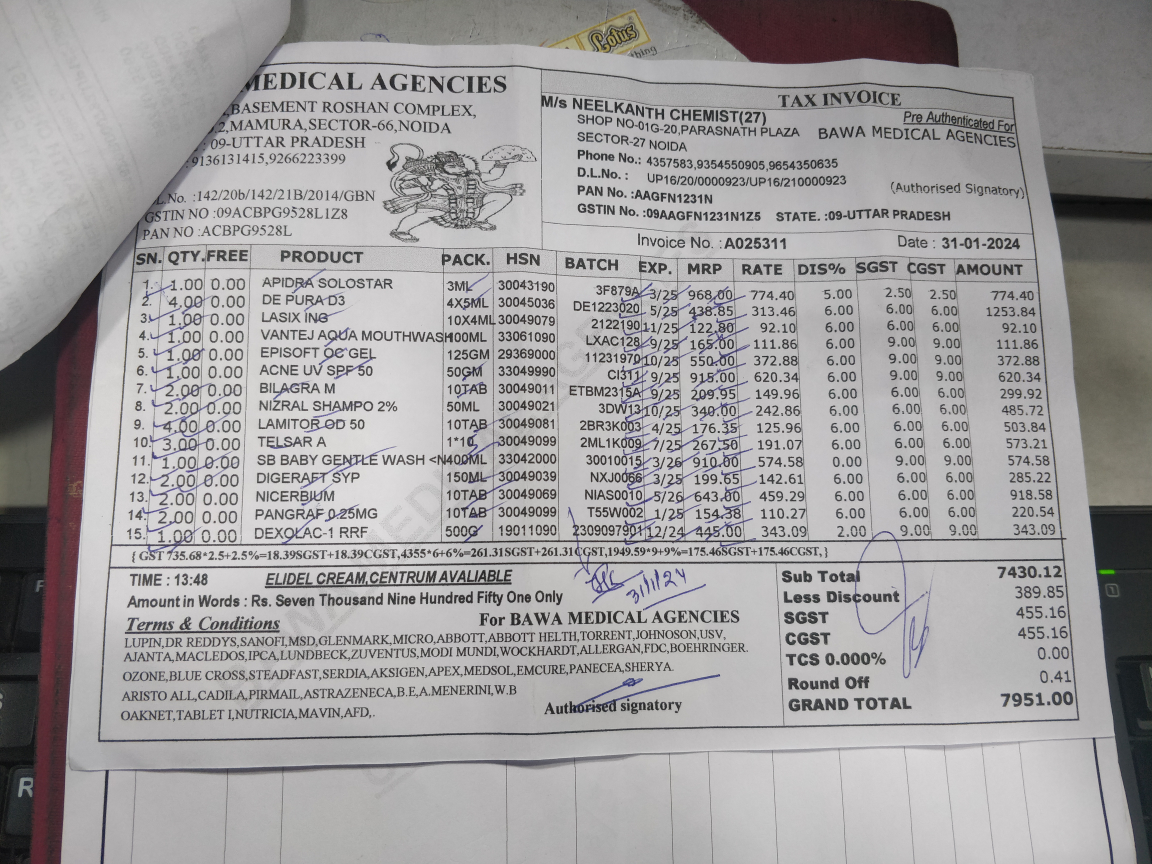 Lotus
MEDICAL AGENCIES
,BASEMENT ROSHAN COMPLEX,
2,MAMURA,SECTOR-66,NOIDA
: 09-UTTAR PRADESH
: 9136131415,9266223399
L.No. :142/20b/142/21B/2014/GBN
GSTIN NO :09ACBPG9528L1Z8
PAN NO :ACBPG9528L
TAX INVOICE
M/s NEELKANTH CHEMIST(27)
SHOP NO-01G-20,PARASNATH PLAZA
SECTOR-27 NOIDA
Phone No.: 4357583,9354550905,9654350635
D.L.No.: UP16/20/0000923/UP16/210000923
PAN No.:AAGFN1231N
GSTIN No.:09AAGFN1231N1Z5 STATE. :09-UTTAR PRADESH
Pre Authenticated For
BAWA MEDICAL AGENCIES
(Authorised Signatory)
Invoice No. :A025311 Date : 31-01-2024
SN. QTY. FREE PRODUCT PACK. HSN BATCH EXP. MRP RATE DIS% SGST CGST AMOUNT
1. 1.00 0.00 APIDRA SOLOSTAR 3ML 30043190 3F879A 3/25 968.00 774.40 5.00 2.50 2.50 774.40
2. 4.00 0.00 DE PURA D3 4X5ML 30045036 DE1223020 5/25 438.85 313.46 6.00 6.00 6.00 1253.84
3. 1.00 0.00 LASIX ING 10X4ML 30049079 2122190 11/25 122.80 92.10 6.00 6.00 6.00 92.10
4. 1.00 0.00 VANTEJ AQUA MOUTHWASH 100ML 33061090 LXAC128 9/25 165.00 111.86 6.00 9.00 9.00 111.86
5. 1.00 0.00 EPISOFT OC GEL 125GM 29369000 11231970 10/25 550.00 372.88 6.00 9.00 9.00 372.88
6. 1.00 0.00 ACNE UV SPF 50 50GM 33049990 CI311 9/25 915.00 620.34 6.00 9.00 9.00 620.34
7. 2.00 0.00 BILAGRA M 10TAB 30049011 ETBM2315A 9/25 209.95 149.96 6.00 6.00 6.00 299.92
8. 2.00 0.00 NIZRAL SHAMPO 2% 50ML 30049021 3DW13 10/25 340.00 242.86 6.00 6.00 6.00 485.72
9. 4.00 0.00 LAMITOR OD 50 10TAB 30049081 2BR3K003 4/25 176.35 125.96 6.00 6.00 6.00 503.84
10. 3.00 0.00 TELSAR A 1*10 30049099 2ML1K009 7/25 267.50 191.07 6.00 6.00 6.00 573.21
11. 1.00 0.00 SB BABY GENTLE WASH <N 400ML 33042000 30010015 3/26 910.00 574.58 0.00 9.00 9.00 574.58
12. 2.00 0.00 DIGERAFT SYP 150ML 30049039 NXJ0066 3/25 199.65 142.61 6.00 6.00 6.00 285.22
13. 2.00 0.00 NICERBIUM 10TAB 30049069 NIAS0010 5/26 643.00 459.29 6.00 6.00 6.00 918.58
14. 2.00 0.00 PANGRAF 0.25MG 10TAB 30049099 T55W002 1/25 154.38 110.27 6.00 6.00 6.00 220.54
15. 1.00 0.00 DEXOLAC-1 RRF 500G 19011090 2309097901 12/24 445.00 343.09 2.00 9.00 9.00 343.09
{ GST 735.68*2.5+2.5%=18.39SGST+18.39CGST,4355*6+6%=261.31SGST+261.31CGST,1949.59*9+9%=175.46SGST+175.46CGST,}
TIME : 13:48 ELIDEL CREAM,CENTRUM AVALIABLE
Amount in Words : Rs. Seven Thousand Nine Hundred Fifty One Only
31/1/24
Terms & Conditions For BAWA MEDICAL AGENCIES
LUPIN,DR REDDYS,SANOFI,MSD,GLENMARK,MICRO,ABBOTT,ABBOTT HELTH,TORRENT,JOHNSON,USV,
AJANTA,MACLEDOS,IPCA,LUNDBECK,ZUVENTUS,MODI MUNDI,WOCKHARDT,ALLERGAN,FDC,BOEHRINGER.
OZONE,BLUE CROSS,STEADFAST,SERDIA,AKSIGEN,APEX,MEDSOL,EMCURE,PANECEA,SHERYA.
ARISTO ALL,CADILA,PIRMAIL,ASTRAZENECA,B.E,A.MENERINI,W.B
OAKNET,TABLET I,NUTRICIA,MAVIN,AFD,.
Authorised signatory
Sub Total 7430.12
Less Discount 389.85
SGST 455.16
CGST 455.16
TCS 0.000% 0.00
Round Off 0.41
GRAND TOTAL 7951.00